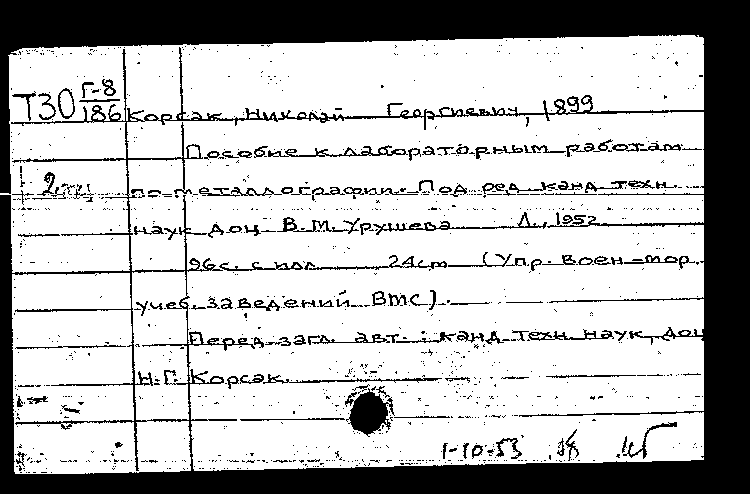 Т30 Г-8
186 Корсак, Николай Георгиевич, 1899
Пособие к лабораторным работам
по металлографии. Под ред. канд. техн.
наук доц. В.М. Урушева Л., 1952
96с. с илл 24cm (Упр. воен-мор.
учеб. заведений ВМС).
Перед загл. авт.: канд техн. наук, доц
Н.Г. Корсак.
1-10-53